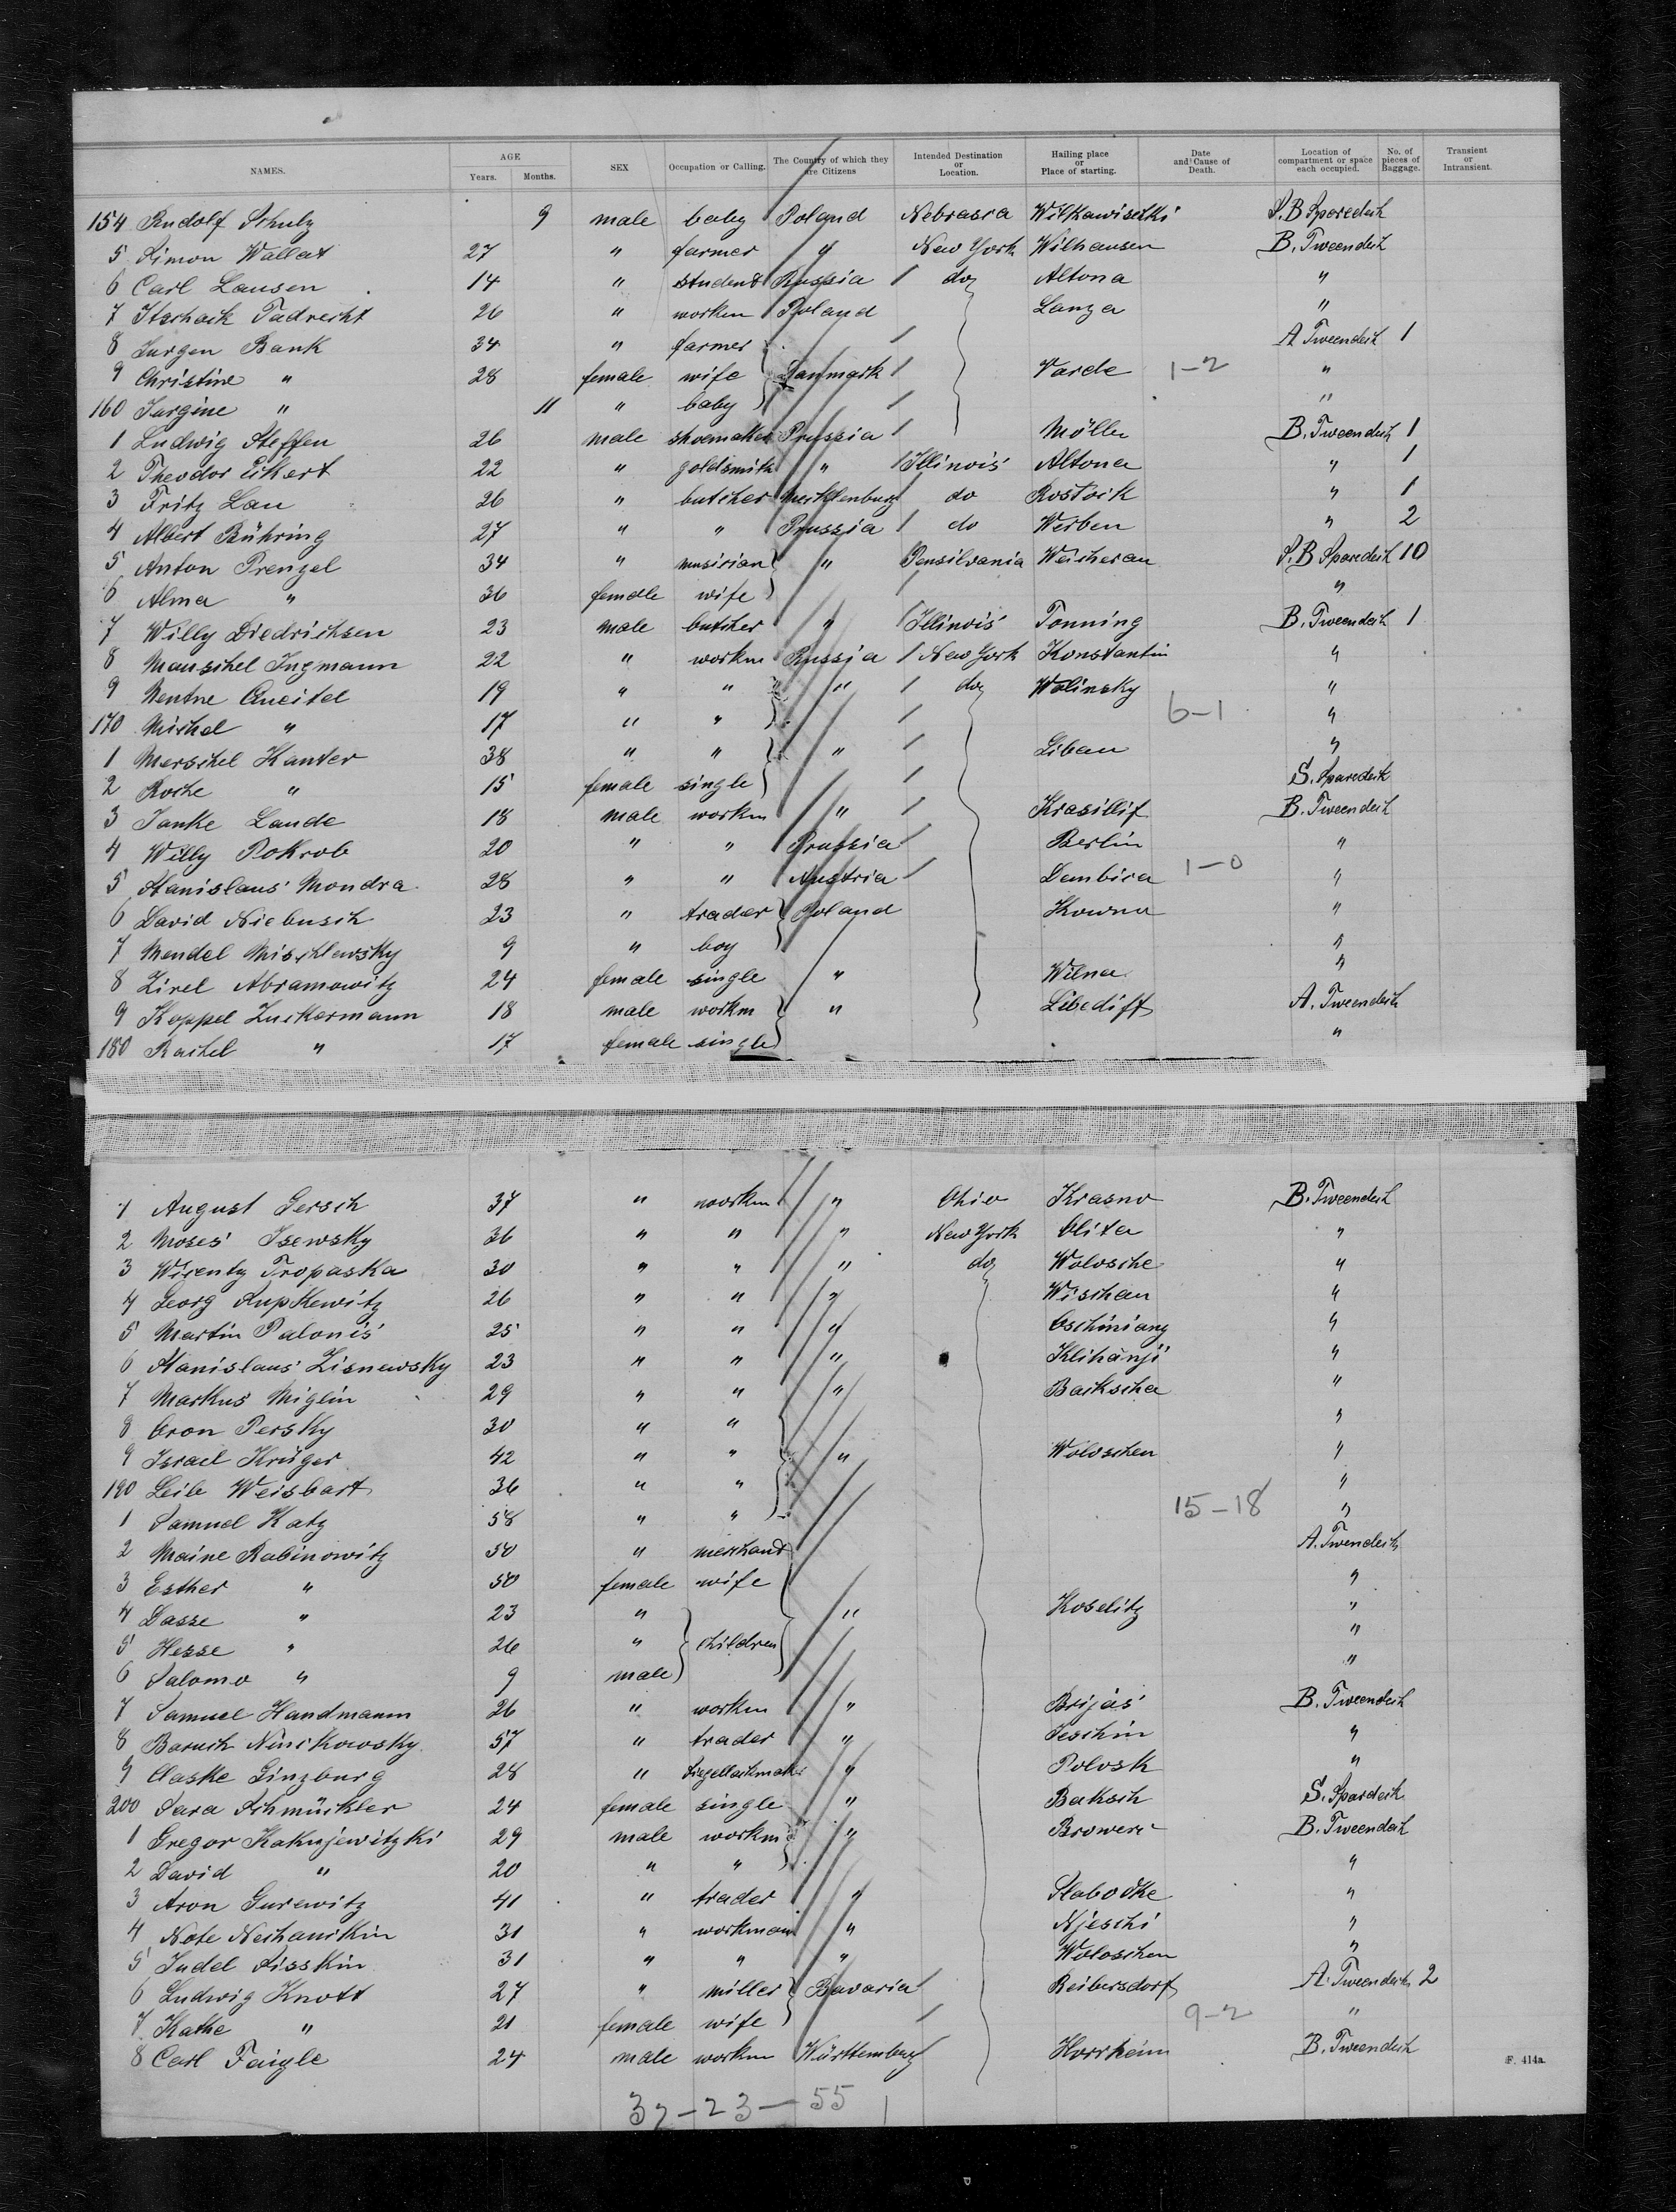 NAMES. AGE Years. Months. SEX Occupation or Calling. The Country of which they are Citizens Intended Destination or Location. Hailing place or Place of starting. Date and Cause of Death. Location of compartment or space each occupied. No. of pieces of Baggage. Transient or Intransient.
154 Rudolf Schulz 9 male baby Poland Nebrasca Wilkawischki S.B Sparedeck
5 Simon Wallat 27 " farmer " New York Wilhausen B. Tweendeck
6 Carl Lausen 14 " student Russia do Altona "
7 Itschack Tadrecht 26 " workm Poland Lanza "
8 Jurgen Bank 34 " farmer A Tweendeck 1
9 Christine " 28 female wife Danmark Varde 1-2 "
160 Jurgine " 11 " baby "
1 Ludwig Steffen 26 male shoemaker Prussia Mölln B. Tweendeck 1
2 Theodor Eckert 22 " goldsmith " Illinois Altona " 1
3 Fritz Lau 26 " butcher Mecklenburg do Rostock " 1
4 Albert Bühring 27 " " Prussia do Werben " 2
5 Anton Prenzel 34 " musician " Pensilvania Weicherau S.B Sparedeck 10
6 Alma " 36 female wife "
7 Willy Diedrichsen 23 male butcher " Illinois Tonning B. Tweendeck 1
8 Mauschel Jugmann 22 " workm Russia New York Konstantin "
9 Nentne Queitel 19 " " " do Wolinsky "
170 Michel " 17 " " 6-1 "
1 Merschel Kanter 38 " " " Libau "
2 Roche " 15 female single S. Sparedeck
3 Janke Laude 18 male workm " Krasillif B. Tweendeck
4 Willy Pokrob 20 " " Prussia Berlin "
5 Stanislaus Mondra 28 " " Austria Dembica 1-0 "
6 David Niebusch 23 " trader Poland Kowno "
7 Mendel Mischlewsky 9 " boy "
8 Zirel Abramowitz 24 female single " Wilna "
9 Koppel Zuckermann 18 male workm " Libediff A. Tweendeck
180 Rachel " 17 female single "
1 August Gersch 37 " workm " Ohio Krasno B. Tweendeck
2 Moses Isewsky 36 " " " New York Olita "
3 Wicenty Tropaska 30 " " " do Wolosche "
4 Georg Rupkewitz 26 " " " Wischan "
5 Martin Palonis 25 " " " Oschiniany "
6 Stanislaus Zisnewsky 23 " " " Klihanji "
7 Markus Miglin 29 " " " Backscha "
8 Oron Persky 30 " " "
9 Israel Krüger 42 " " " Woloschen "
190 Leib Weisbart 36 " " "
1 Samuel Katz 58 " " 15-18 "
2 Maine Rabinowitz 50 " merchant A. Tweendeck
3 Esther " 50 female wife "
4 Dasse " 23 " " Koselitz "
5 Hesse " 26 " children "
6 Salomo " 9 male "
7 Samuel Handmann 26 " workm " Brijas B. Tweendeck
8 Baruch Ninikowsky 57 " trader " Jeschin "
9 Claske Ginzburg 28 " " Polosk "
200 Sara Schmückler 24 female single " Baksch S. Spardeck
1 Gregor Kakujewitzki 29 male workm " Browere B. Tweendeck
2 David " 20 " " "
3 Aron Gurewitz 41 " trader " Slabodke "
4 Note Nechamkin 31 " workman " Njeschi "
5 Judel Sisskin 31 " " " Woloschen "
6 Ludwig Knott 27 " miller Bavaria Reibersdorf A. Tweendeck 2
7 Kathe " 21 female wife 9-2 "
8 Carl Faigle 24 male workm Württemberg Horrheim B. Tweendeck
F. 414a.
32-23-55